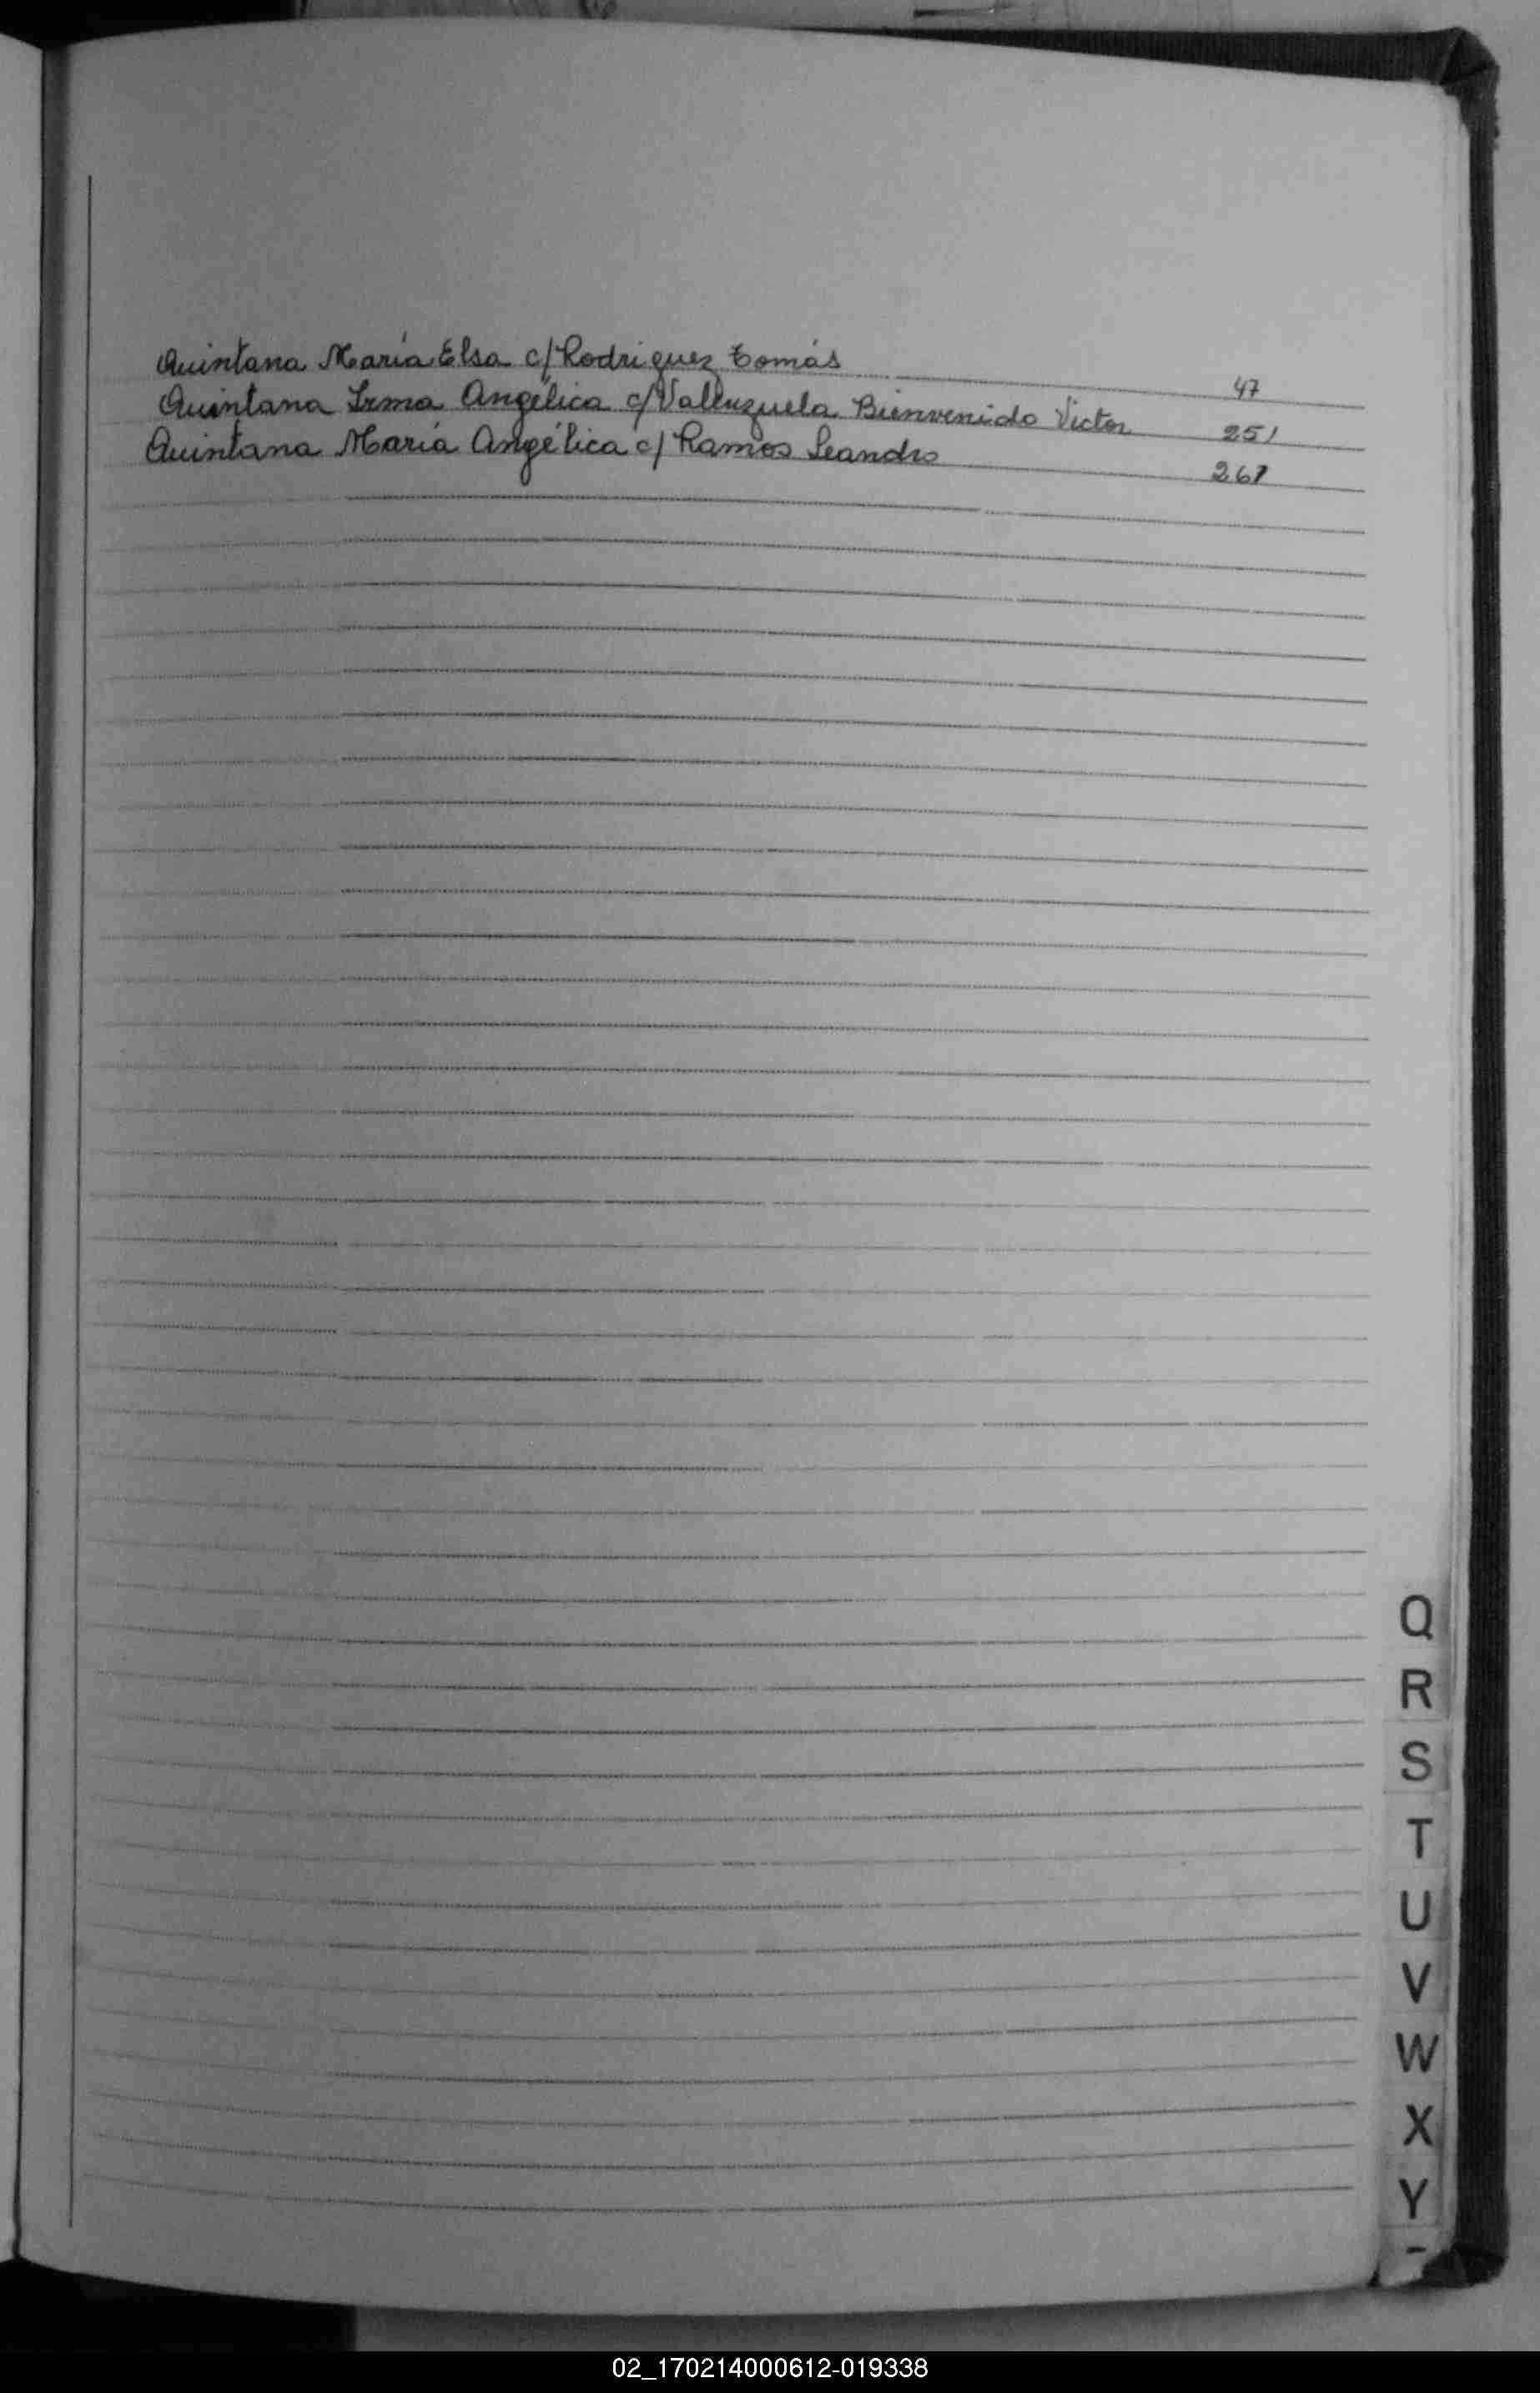 Quintana María Elsa c/ Rodriguez Tomás 47
Quintana Irma Angélica c/ Vallenzuela Bienvenido Victor 251
Quintana María Angélica c/ Ramos Leandro 261
Q
R
S
T
U
V
W
X
Y
02_170214000612-019338